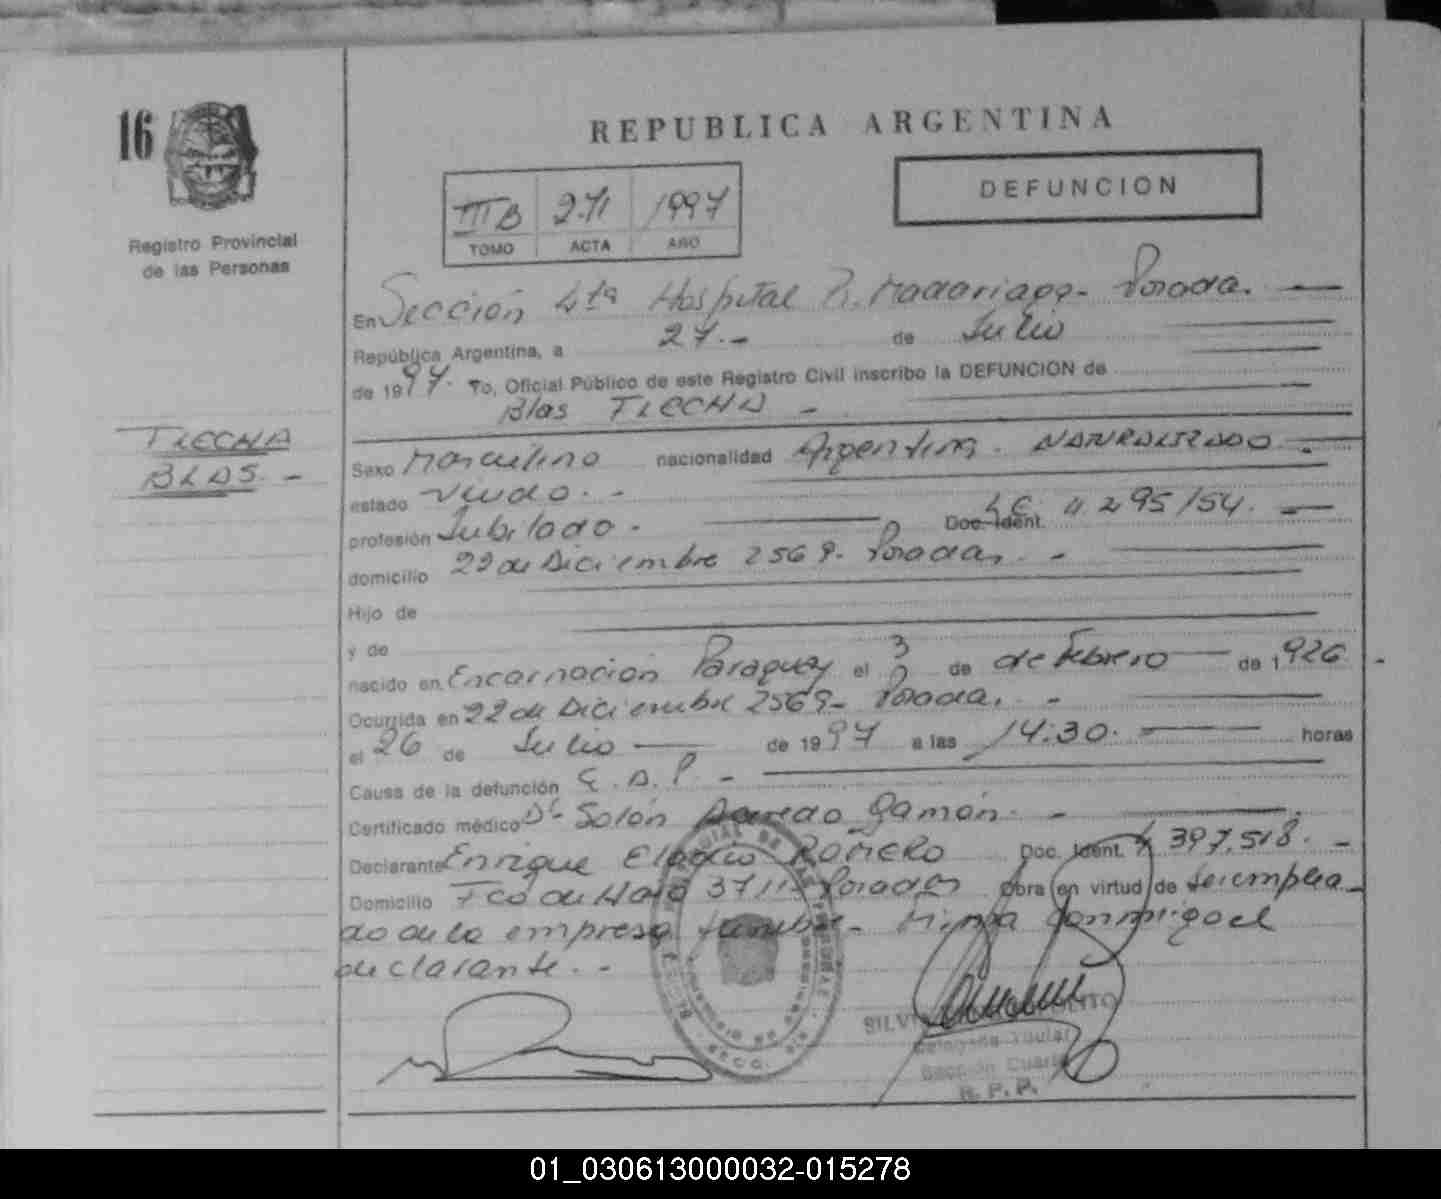 16
REPUBLICA ARGENTINA
III B 271 1997
TOMO ACTA AÑO
DEFUNCION
Registro Provincial
de las Personas
En Sección 4ta Hospital R. Madariaga - Posadas. —
República Argentina, a 27.- de Julio
de 1997. Yo, Oficial Público de este Registro Civil inscribo la DEFUNCION de
Blas FLECHA -
FLECHA
BLAS. -
Sexo Masculino nacionalidad Argentina. NATURALIZADO
estado Viudo. -
profesión Jubilado. - Doc. Ident. 4295/54. —
domicilio 22 de Diciembre 2569. Posadas. -
Hijo de
y de
nacido en Encarnación Paraguay el 3 de de Febrero — de 1926. -
Ocurrida en 22 de Diciembre 2569 - Posadas. -
el 26 de Julio — de 1997 a las 14:30. — horas
Causa de la defunción -
Certificado médico Dr. Solón Ramón. -
Declarante Enrique Eladio ROMERO Doc. Ident. 397.518. -
Domicilio Fco de Haro 3711 - Posadas Obra en virtud de ser emplea-
do de la empresa fúnebre - Firma conmigo el
declarante. -
SILVI
Delegada Titular
Sección Cuarta
R. P. P.
01_030613000032-015278